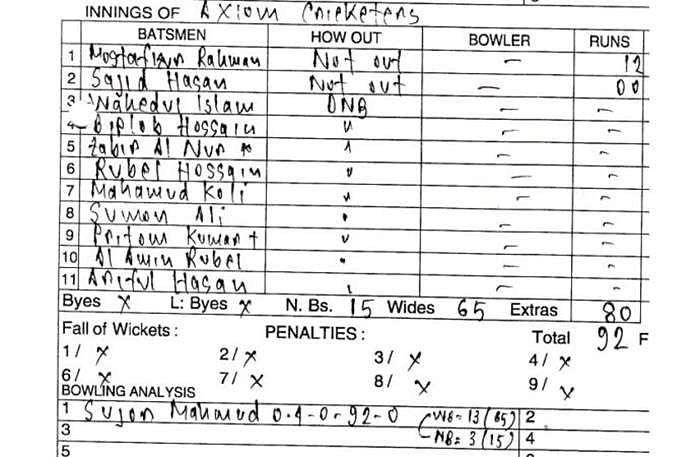 INNINGS OF Axiom Cricketers
BATSMEN HOW OUT BOWLER RUNS
1 Mostafizur Rahman Not out — 12
2 Sajid Hasan Not out — 00
3 Wahedul Islam DNB — -
4 Biplob Hossain " — -
5 Zabir Al Nur * — -
6 Rubel Hossain " — -
7 Mahamud Koli " — -
8 Sumon Ali " — -
9 Pritom Kumar + " — -
10 Al Amin Rubel " — -
11 Ariful Hasan — -
Byes x L: Byes x N. Bs. 15 Wides 65 Extras 80
Fall of Wickets : PENALTIES : Total 92 F
1/ x 2/ x 3/ x 4/ x
6/ x 7/ x 8/ x 9/ x
BOWLING ANALYSIS
1 Sujon Mahmud 0.4-0-92-0 WB = 13 (65) 2
3 NB = 3 (15) 4
5